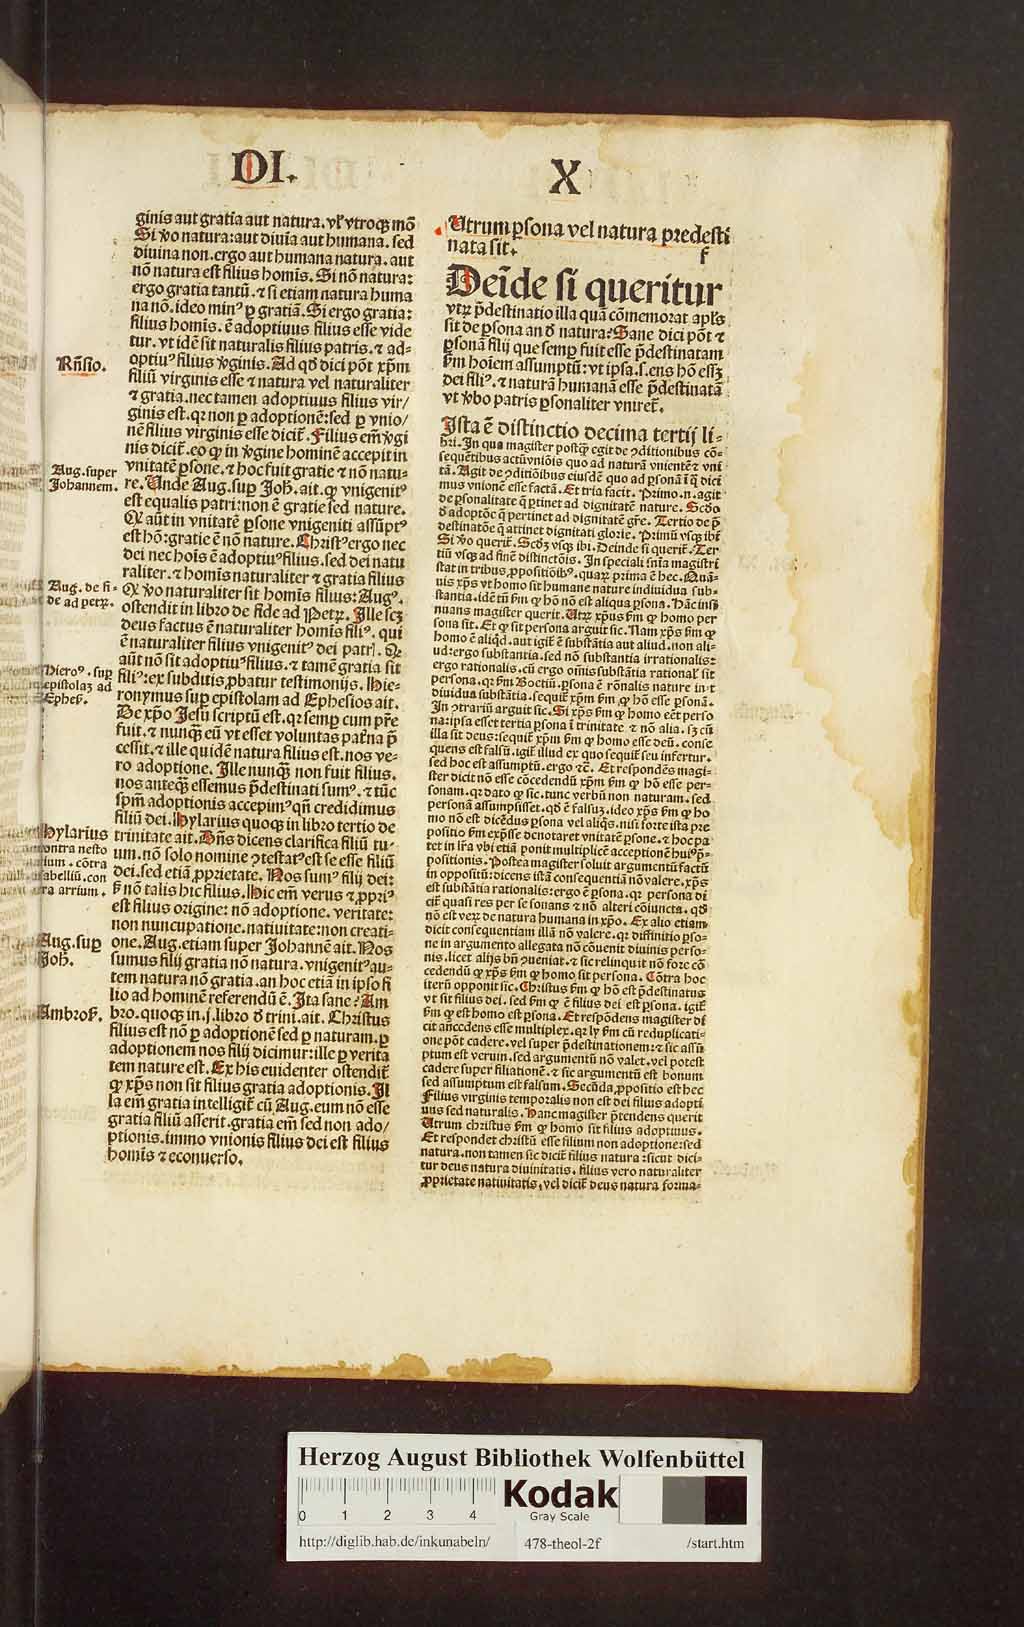 DI.
X
ginis aut gratia aut natura. vl' vtroqꝫ mō
Si v̄o natura: aut diuīa aut humana. sed
diuina non. ergo aut humana natura. aut
nō natura est filius homīs. Si nō natura:
ergo gratia tantū. ⁊ si etiam natura huma
na nō. ideo minꝰ ꝑ gratiā. Si ergo gratia:
filius homīs. ē adoptiuus filius esse vide
tur. vt idē sit naturalis filius patris. ⁊ ad-
optiuꝰ filius v̄ginis. Ad qd̄ dici pōt xp̄m
filiū virginis esse ⁊ natura vel naturaliter
⁊ gratia. nec tamen adoptiuus filius vir/
ginis est. qꝛ non ꝑ adoptionē: sed ꝑ vnio/
nē filius virginis esse dicit̄. Filius em̄ v̄gi
nis dicit̄. eo ꝙ in v̄gine hominē accepit in
vnitatē ꝑsone. ⁊ hoc fuit gratie ⁊ nō natu-
re. Unde Aug. suꝑ Joh̄. ait. ꝙ vnigenitꝰ
est equalis patri: non ē gratie sed nature.
Ꝙ aūt in vnitatē ꝑsone vnigeniti assūptꝰ
est hō: gratie ē nō nature. Christꝰ ergo nec
dei nec hoīs ē adoptiuꝰ filius. sed dei natu
raliter. ⁊ homīs naturaliter ⁊ gratia filius
Ꝙ v̄o naturaliter sit homīs filius: Augꝰ.
ostendit in libro de fide ad Petꝝ. Ille scꝫ
deus factus ē naturaliter homīs filiꝰ. qui
ē naturaliter filius vnigenitꝰ dei patrꝭ. Ꝙ
aūt nō sit adoptiuꝰ filius. ⁊ tamē gratia sit
filiꝰ: ex subditis ꝓbatur testimonijs. Hie-
ronymus suꝑ epistolam ad Ephesios ait.
De xp̄o Jesu scriptū est. qꝛ semꝑ cum pr̄e
fuit. ⁊ nunqꝫ eū vt esset voluntas pat̄na p̄
cessit. ⁊ ille quidē natura filius est. nos ve-
ro adoptione. Ille nunqꝫ non fuit filius.
nos anteqꝫ essemus p̄destinati sumꝰ. ⁊ tūc
sp̄m adoptionis accepimꝰ qn̄ credidimus
filiū dei. Hylarius quoqꝫ in libro tertio de
trinitate ait. Dn̄s dicens clarifica filiū tu-
um. nō solo nomine ɔtestatꝰ est se esse filiū
dei. sed etiā ꝓprietate. Nos sumꝰ filij dei:
s̄ nō talis hic filius. Hic em̄ verus ⁊ ꝓpriꝰ
est filius origine: nō adoptione. veritate:
non nuncupatione. natiuitate: non creati-
one. Aug. etiam super Johannē ait. Nos
sumus filij gratia nō natura. vnigenitꝰ au-
tem natura nō gratia. an hoc etiā in ipso fi
lio ad hominē referendū ē. Ita sane: Am
bro. quoqꝫ in .j. libro d̄ trini. ait. Christus
filius est nō ꝑ adoptionē sed ꝑ naturam. ꝑ
adoptionem nos filij dicimur: ille ꝑ verita
tem nature est. Ex his euidenter ostendit̄
ꝙ xp̄s non sit filius gratia adoptionis. Il
la em̄ gratia intelligit̄ cū Aug. eum nō esse
gratia filiū asserit. gratia em̄ sed non ado/
ptionis. immo vnionis filius dei est filius
homīs ⁊ econuerso.
Rn̄sio.
Aug. super
Johannem.
Aug. de fi-
de ad petꝝ.
Hieroꝰ. suꝑ
epistolaꝫ ad
Epheb̄.
Hylarius
contra nesto
rium. cōtra
sabelliū. con
tra arrium.
Aug. suꝑ
Joh̄.
Ambrob̄.
Utrum ꝑsona vel natura predesti
nata sit.
f
Deīde si queritur
vtꝝ p̄destinatio illa quā cōmemorat apl's
sit de ꝑsona an d̄ natura: Sane dici pōt ⁊
ꝑsonā filij que semꝑ fuit esse p̄destinatam
s̄m hoīem assumptū: vt ipsa .s. ens hō esset
dei filiꝰ. ⁊ naturā humanā esse p̄destinatā
vt v̄bo patris ꝑsonaliter vniret̄.
Ista ē distinctio decima tertij li-
bri. In qua magister postqꝫ egit de ɔditionibus cō-
sequētibus actū vniōis quo ad naturā vnientē ⁊ vni
tā. Agit de ɔditiōibus eiusdē quo ad ꝑsonā ī q̄ dici
mus vnionē esse factā. Et tria facit. Primo .n. agit
de ꝑsonalitate q̄ ꝑtinet ad dignitatē nature. Scd̄o
d̄ adoptōe q̄ pertinet ad dignitatē gr̄e. Tertio de p̄
destinatōe q̄ attinet dignitati glorie. Primū vsqꝫ ibi
Si v̄o querit̄. Scd̄ꝫ vsqꝫ ibi. Deinde si querit̄. Ter
tiū vsqꝫ ad finē distinctōis. In speciali sn̄ia magistri
stat in tribus ꝓpositiōibꝰ. quaꝝ prima ē hec. Quā-
uis xp̄s vt homo sit humane nature indiuidua sub-
stantia. idētū s̄m ꝙ hō nō est aliqua ꝑsona. Hāc insi
nuans magister querit. Utꝝ xp̄us s̄m ꝙ homo per
sona sit. Et ꝙ sit persona arguit sic. Nam xp̄s s̄m ꝙ
homo ē aliqd. aut igit̄ ē substātia aut aliud. non ali-
ud: ergo substantia. sed nō substantia irrationalis:
ergo rationalis. cū ergo oīnis substātia rational' sit
persona. qꝛ s̄m Boctiū. ꝑsona ē rōnalis nature in t
diuidua substātia. sequit̄ xp̄m s̄m ꝙ hō esse ꝑsonā.
In ɔtrariū arguit sic. Si xp̄s s̄m ꝙ homo eēt perso
na: ipsa esset tertia ꝑsona ī trinitate ⁊ nō alia. sꝫ cū
illa sit deus: sequit̄ xp̄m s̄m ꝙ homo esse deū. conse
quens est falsū. igit̄ illud ex quo sequit̄ seu infertur.
sed hoc est assumptū. ergo ⁊c̄. Et respondēs magi-
ster dicit nō esse cōcedendū xp̄m s̄m ꝙ hō esse per-
sonam. qꝛ dato ꝙ sic. tunc verbū non naturam. sed
personā assumpsisset. qd̄ ē falsuꝫ. ideo xp̄s s̄m ꝙ ho
mo nō est dicēdus ꝑsona vel aliqs. nisi forte ista pre
positio s̄m exp̄sse denotaret vnitatē ꝑsone. ⁊ hoc pa
tet in lr̄a vbi etiā ponit multiplicē acceptionē huiꝰ ꝓ-
positionis. Postea magister soluit argumentū factū
in oppositū: dicens istā consequentiā nō valere. xp̄s
est substātia rationalis: ergo ē ꝑsona. qꝛ persona di
cit̄ quasi res per se sonans ⁊ nō alteri cōiuncta. qd̄
nō est veꝝ de natura humana in xp̄o. Ex alio etiam
dicit consequentiam illā nō valere. qꝛ diffinitio ꝑso-
ne in argumento allegata nō cōuenit diuinis perso-
nis. licet alijs bn̄ ɔueniat. ⁊ sic relinquit nō fore cō
cedendū ꝙ xp̄s s̄m ꝙ homo sit persona. Cōtra hoc
iterū opponit sic. Christus s̄m ꝙ hō est p̄destinatus
vt sit filius dei. sed s̄m ꝙ ē filius dei est ꝑsona. igit̄
s̄m ꝙ est homo est ꝑsona. Et respōdens magister di
cit an̄cedens esse multiplex. qꝛ ly s̄m cū reduplicati-
one pōt cadere. vel super p̄destinationem: ⁊ sic assū
ptum est verum. sed argumentū nō valet. vel potest
cadere super filiationē. ⁊ sic argumentū est bonum
sed assumptum est falsum. Secūda ꝓpositio est hec
Filius virginis temporalis non est dei filius adopti
uus sed naturalis. Hanc magister p̄tendens querit
Utrum christus s̄m ꝙ homo sit filius adoptiuus.
Et respondet christū esse filium non adoptione: sed
natura. non tamen sic dicit̄ filius natura: sicut dici-
tur deus natura diuinitatis. filius vero naturaliter
ꝓprietate natiuitatis, vel dicit̄ deus natura forma-
Herzog August Bibliothek Wolfenbüttel
0 1 2 3 4
Kodak
Gray Scale
http://diglib.hab.de/inkunabeln/ 478-theol-2f /start.htm